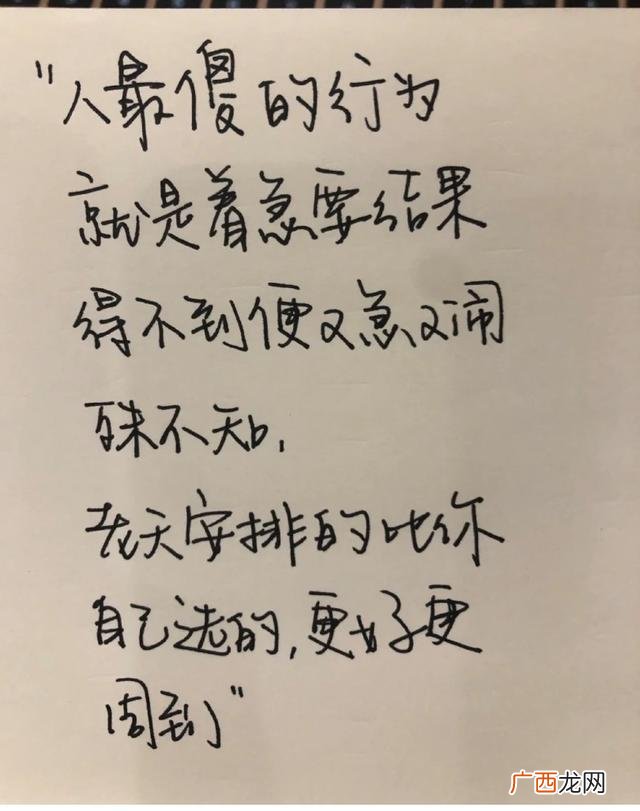 "人最傻的行为
就是着急要结果
得不到便又急又闹
殊不知，
老天安排的比你
自己选的，更好更
周到"
广西龙网